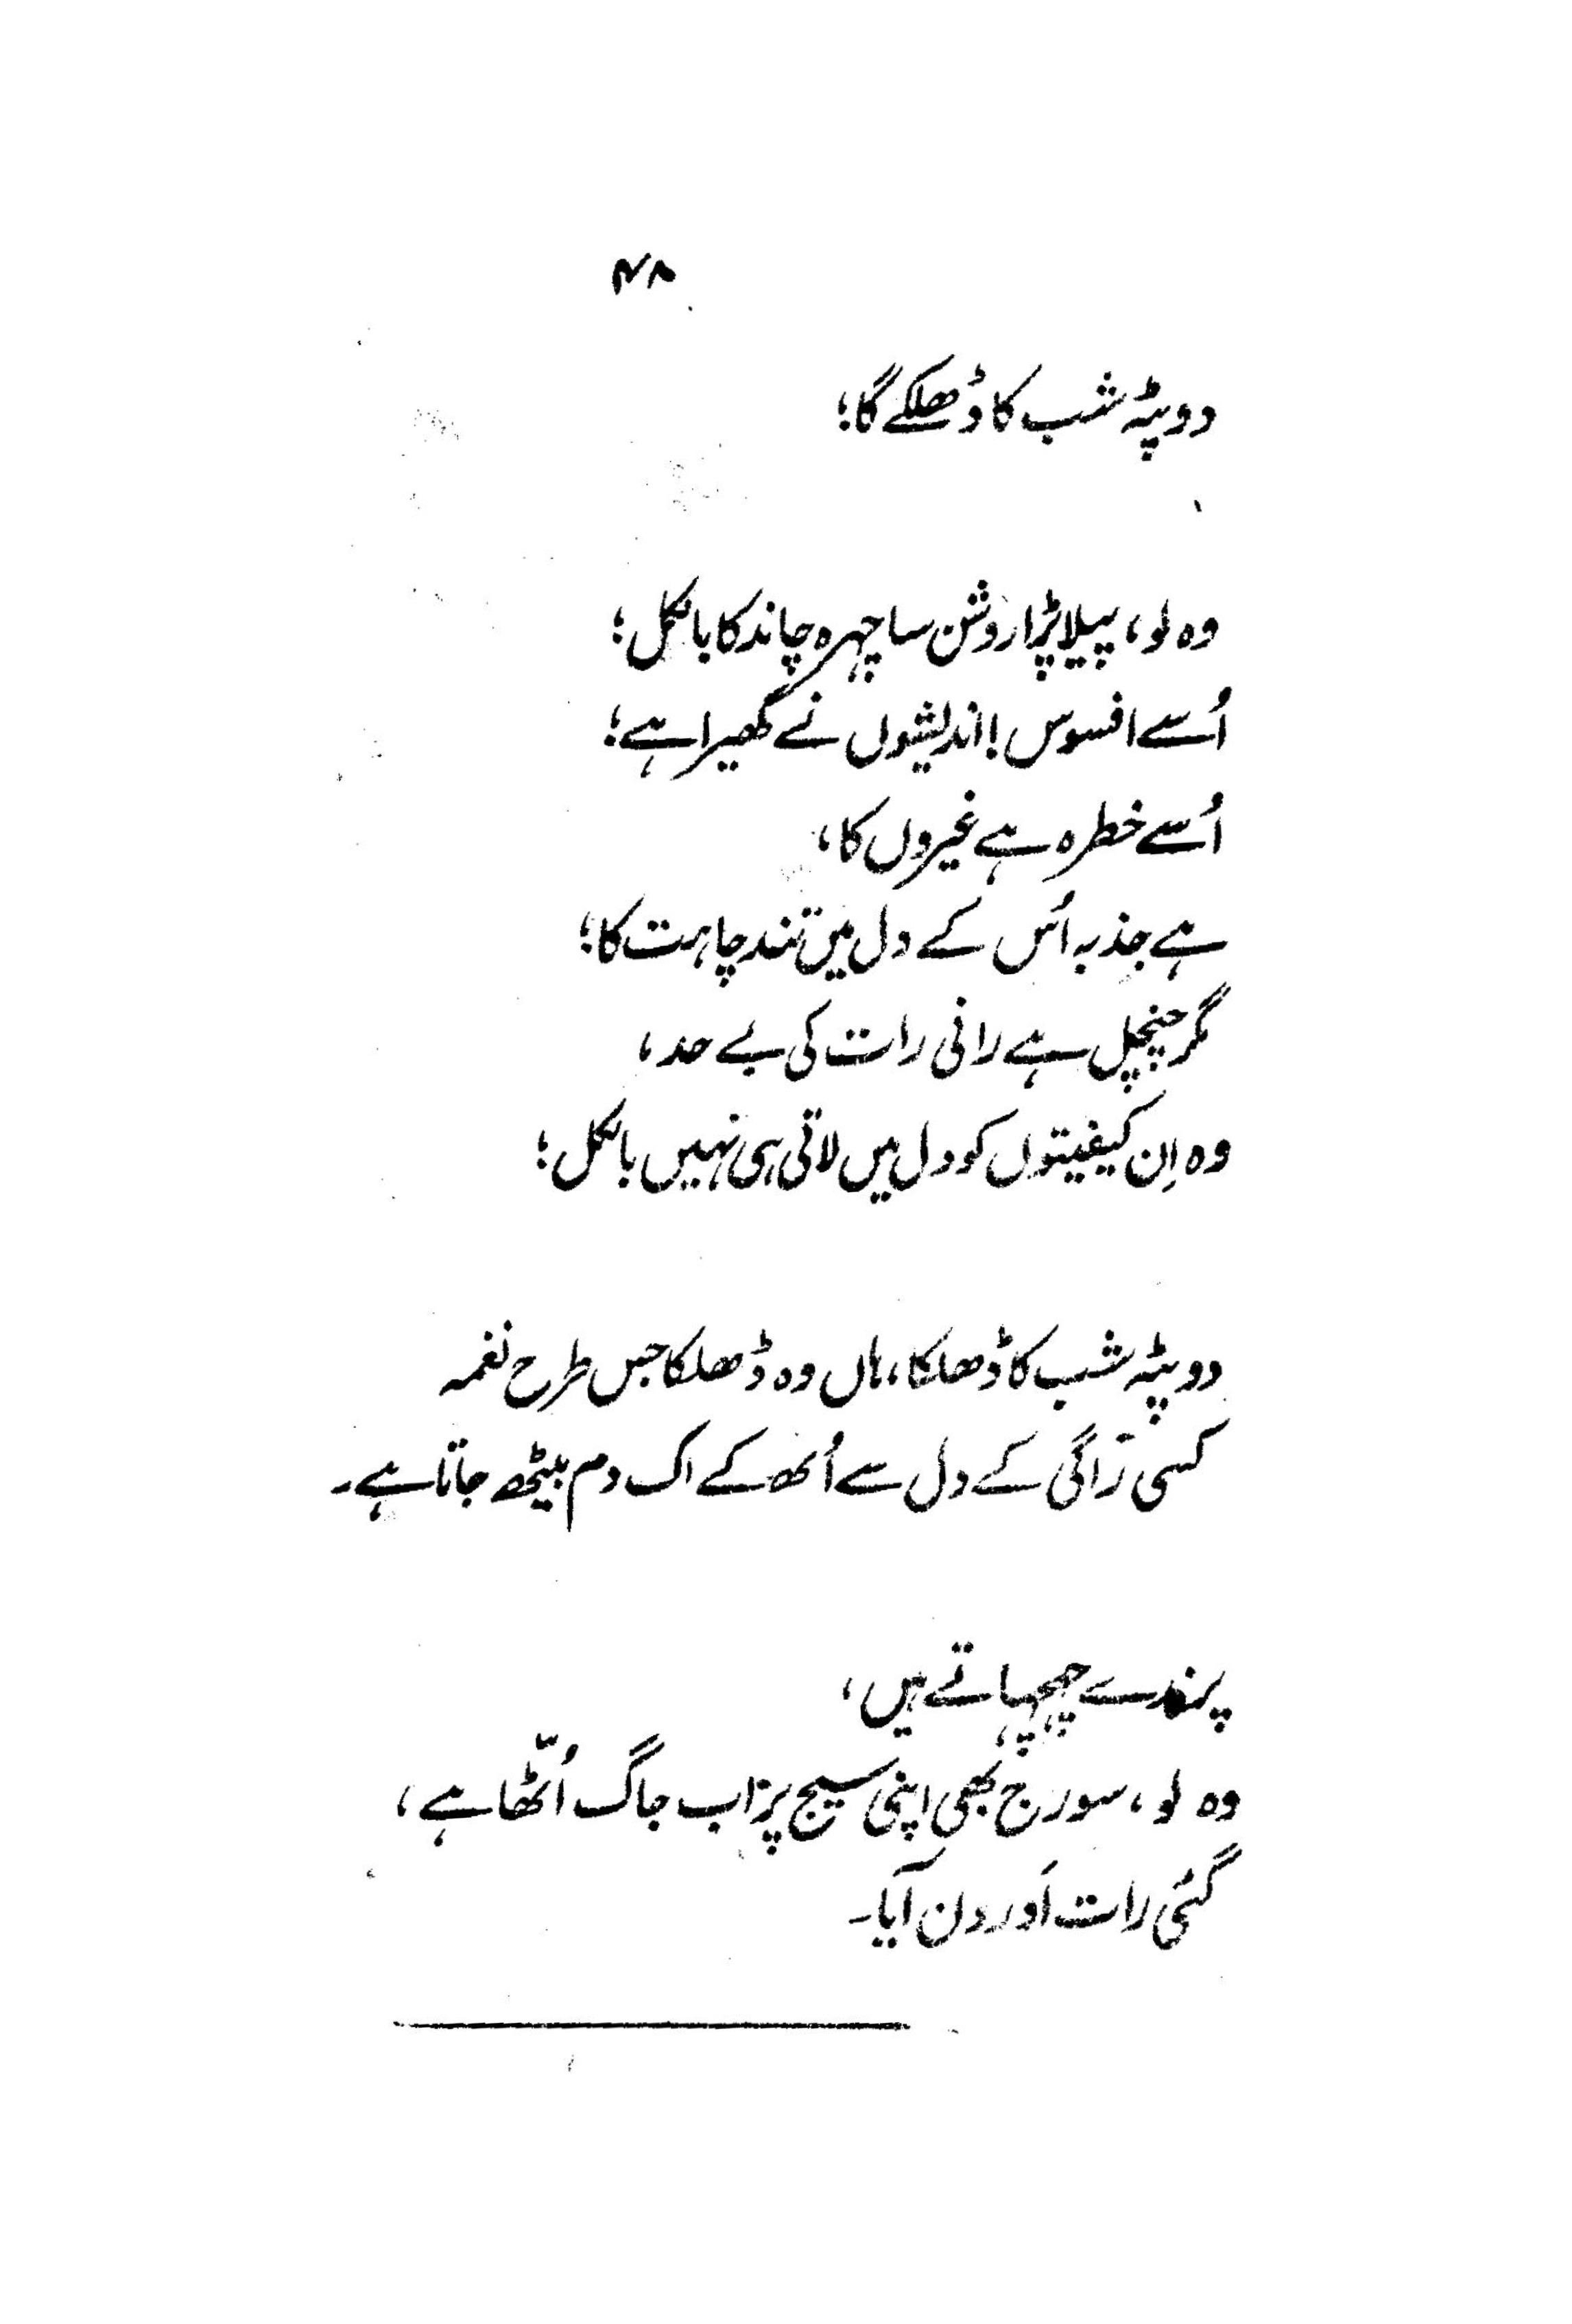 ۴۸
دوپٹہ شب کا ڈھلکے گا؛
وہ لو، پیلا پڑا روشن سا چہرہ چاند کا بالکل؛
اُسے افسوس! اندیشوں نے گھیرا ہے؛
اُسے خطرہ ہے غیروں کا،
ہے جذبہ اُس کے دل میں تند چاہت کا؛
مگر چنچل ہے رانی رات کی بے حد،
وہ اِن کیفیتوں کو دل میں لاتی ہی نہیں بالکل؛
دوپٹہ شب کا ڈھلکا، ہاں وہ ڈھلکا جس طرح نغمہ
کسی رَاگی کے دل سے اُٹھ کے اک دم بیٹھ جاتا ہے۔
پرندے چہچہاتے ہیں،
وہ لو، سورج بھی اپنی سیج پر اب جاگ اُٹّھا ہے،
گئی رات اَور دن آیا۔